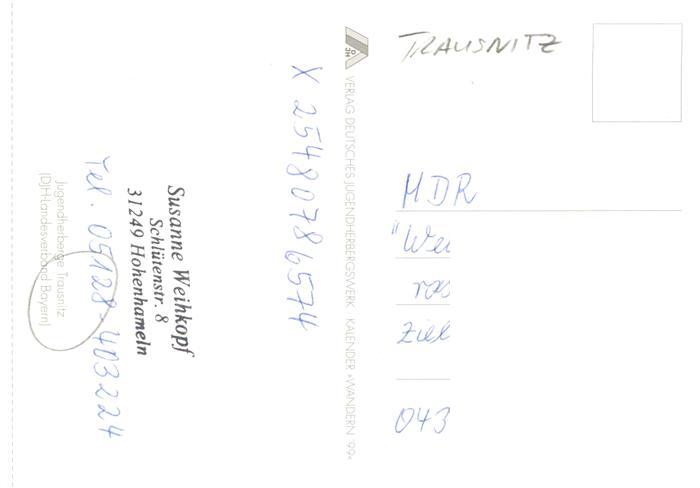 TRAUSNITZ
MDR
"Wei
Ziel
043
VERLAG DEUTSCHES JUGENDHERBERGSWERK KALENDER »WANDERN '99«
X 2548078 6574
Susanne Weihkopf
Schlütenstr. 8
31249 Hohenhameln
Tel. 05128-403224
Jugendherberge Trausnitz
(DJH-Landesverband Bayern)